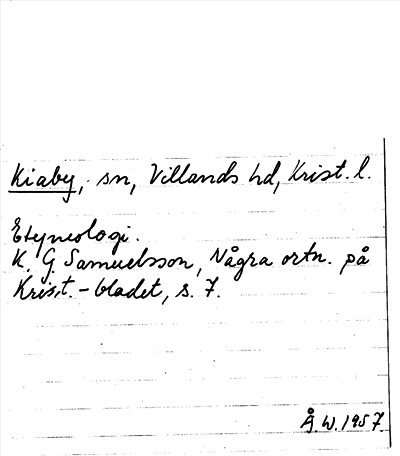 Kiaby, sn, Villands hd, Krist. l.
Etymologi.
K. G. Samuelsson, Några ortn. på
Krist.-bladet, s. 7.
Å W. 1957.